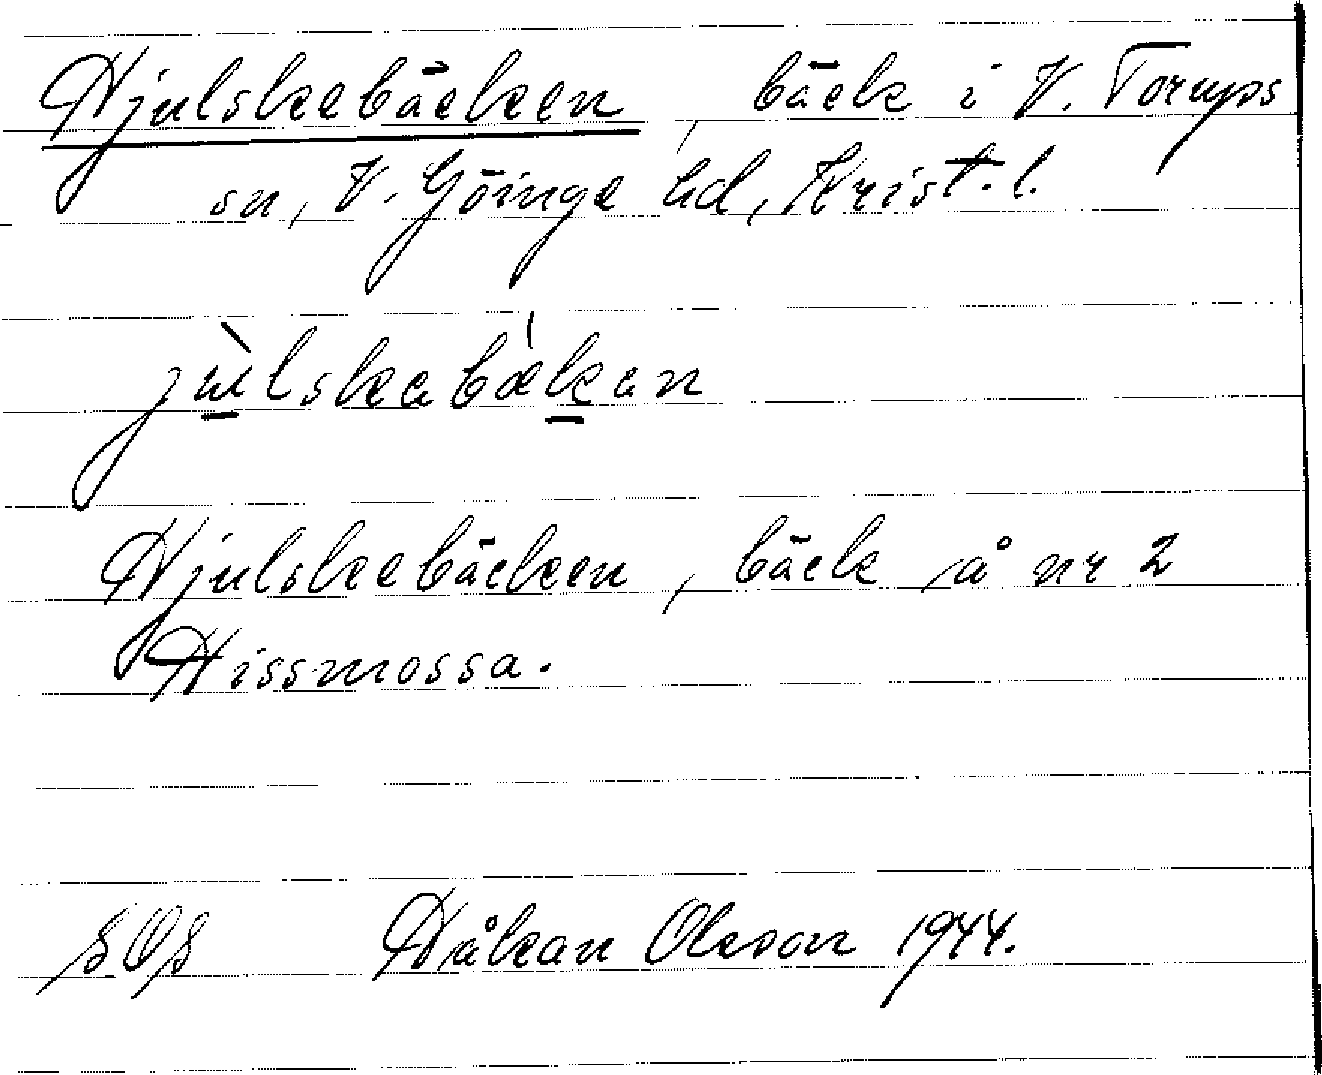 Hjulskebäcken, bäck i V. Torups
sn, V. Göinge hd, Krist. l.
jùlskabækan
Hjulskebäcken, bäck å nr 2
Hissmossa.
Håkan Olsson 1944.